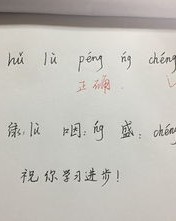 hǔ lù péng ńg chéng
正确.
绿:lù 咽:ńg 盛:chéng
祝你学习进步!